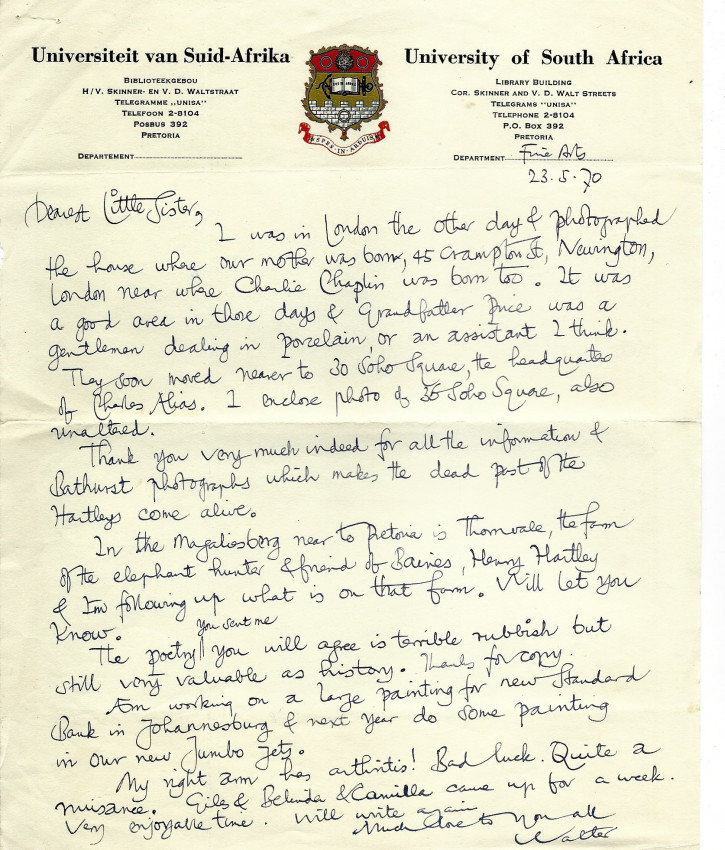 Universiteit van Suid-Afrika
BIBLIOTEEKGEBOU
H/V. SKINNER- EN V. D. WALTSTRAAT
TELEGRAMME "UNISA"
TELEFOON 2-8104
POSBUS 392
PRETORIA
DEPARTEMENT
SPES·IN·ARDUIS
University of South Africa
LIBRARY BUILDING
COR. SKINNER AND V. D. WALT STREETS
TELEGRAMS "UNISA"
TELEPHONE 2-8104
P.O. BOX 392
PRETORIA
DEPARTMENT Fine Arts
23.5.70
Dearest Little Sister,
I was in London the other day & photographed
the house where our mother was born, 45 Crampton St, Newington,
London near where Charlie Chaplin was born too. It was
a good area in those days & Grandfather Price was a
gentleman dealing in porcelain, or an assistant I think.
They soon moved nearer to 30 Soho Square, the headquarters
of Charles Alias. I enclose photo of 36 Soho Square, also
unaltered.
Thank you very much indeed for all the information &
Bathurst photographs which makes the dead past of the
Hartleys come alive.
In the Magaliesberg near to Pretoria is Thornvale, the farm
of the elephant hunter & friend of Baines, Henry Hartley
& I'm following up what is on that farm. Will let you
know.
The poetry || you sent me you will agree is terrible rubbish but
still very valuable as history. Thanks for copy.
Am working on a large painting for new Standard
Bank in Johannesburg & next year do some painting
in our new Jumbo Jets.
My right arm has arthritis! Bad luck. Quite a
nuisance. Giles & Belinda & Camilla came up for a week.
Very enjoyable time. Will write again
Much love to you all
Walter